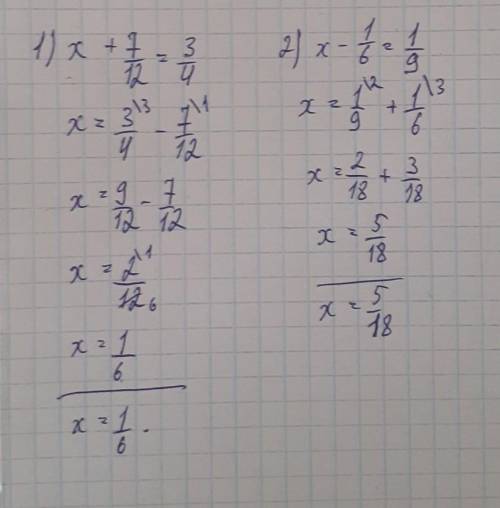 1) x + 7/12 = 3/4
x = 3\3/4 - 7\1/12
x = 9/12 - 7/12
x = 2\1/12 6
x = 1/6
x = 1/6.
2) x - 1/6 = 1/9
x = 1\2/9 + 1\3/6
x = 2/18 + 3/18
x = 5/18
x = 5/18